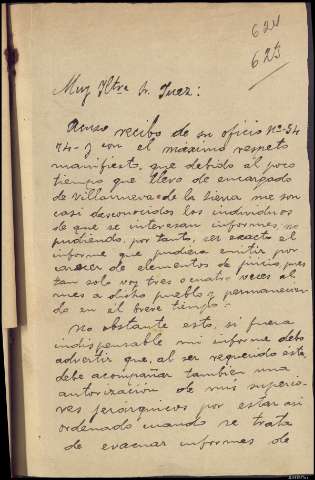 624
625
Muy Iltre Sr. Juez:
Acuso recibo de su oficio Nº 54
74- y con el máximo respeto
manifiesto, que debido al poco
tiempo que llevo de encargado
de Villanueva de la Sierra me son
casi desconocidos los individuos
de que se interesan informes, no
pudiendo, por tanto, ser exacto el
informe que pudiera emitir por
carecer de elementos de juicio, pues
tan solo voy tres o cuatro veces al
mes a dicho pueblo y permanecien
do en el breve tiempo.
No obstante esto, si fuera
indispensable mi informe debo
advertir que, al ser requerido este
debe acompañar tambien una
autorización de mis superio-
res jerarquicos por estar asi
ordenado cuando se trata
de evacuar informes de